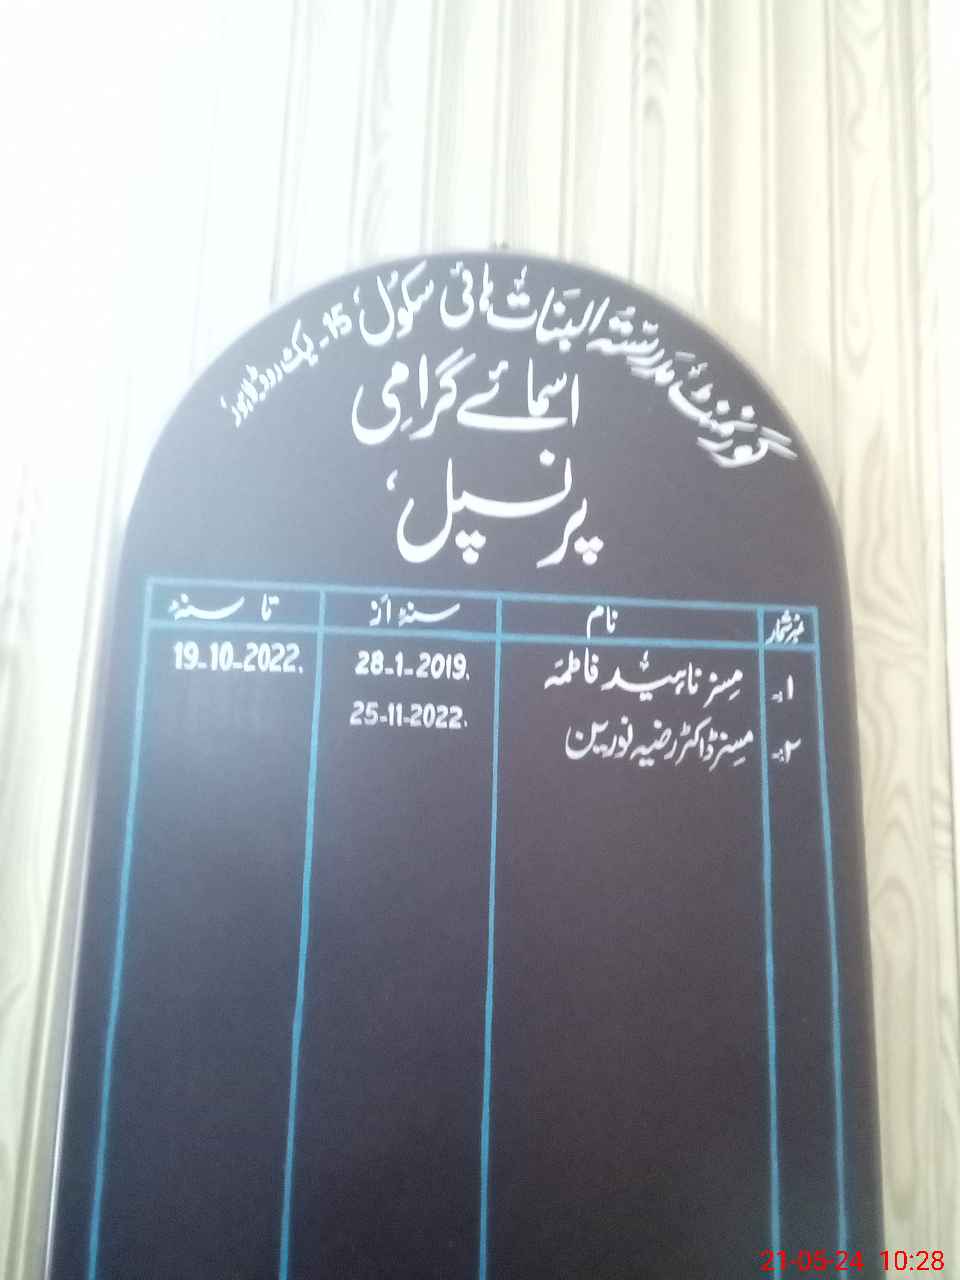 گورنمنٹ مدرستہ البنات ہائی سکول 15- لیک روڈ لاہور
اسمائے گرامی
پرنسپل
نمبر شمار نام سنہ از تا سنہ
۱۔ مسز ناہید فاطمہ 28-1-2019. 19-10-2022.
۲۔ مسز ڈاکٹر رضیہ نورین 25-11-2022.
21-05-24 10:28